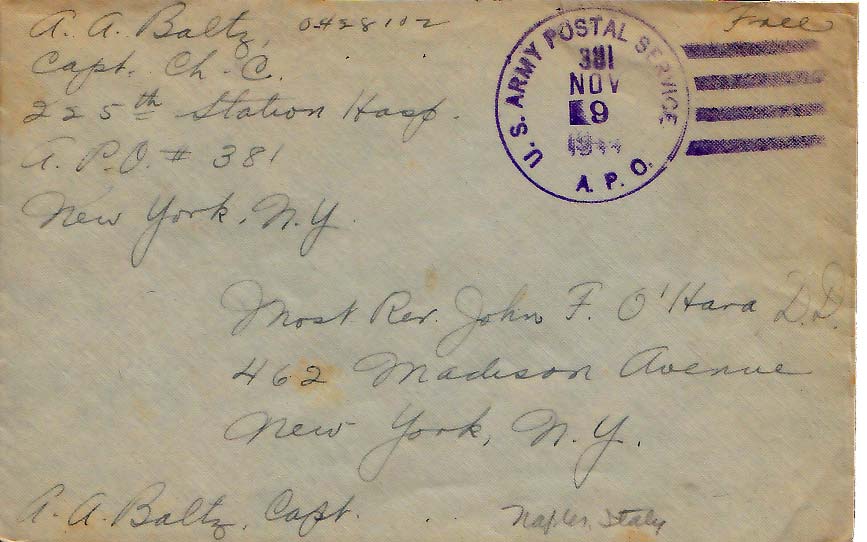 A. A. Baltz, 0428102
Capt. Ch. C.
225th Station Hosp.
A. P.O. # 381
New York, N.Y.
U. S. ARMY POSTAL SERVICE
381
NOV
9
1944
A. P. O.
Free
Most Rev. John F. O'Hara D.D.
462 Madison Avenue
New York, N.Y.
A. A. Baltz, Capt.
Naples, Italy